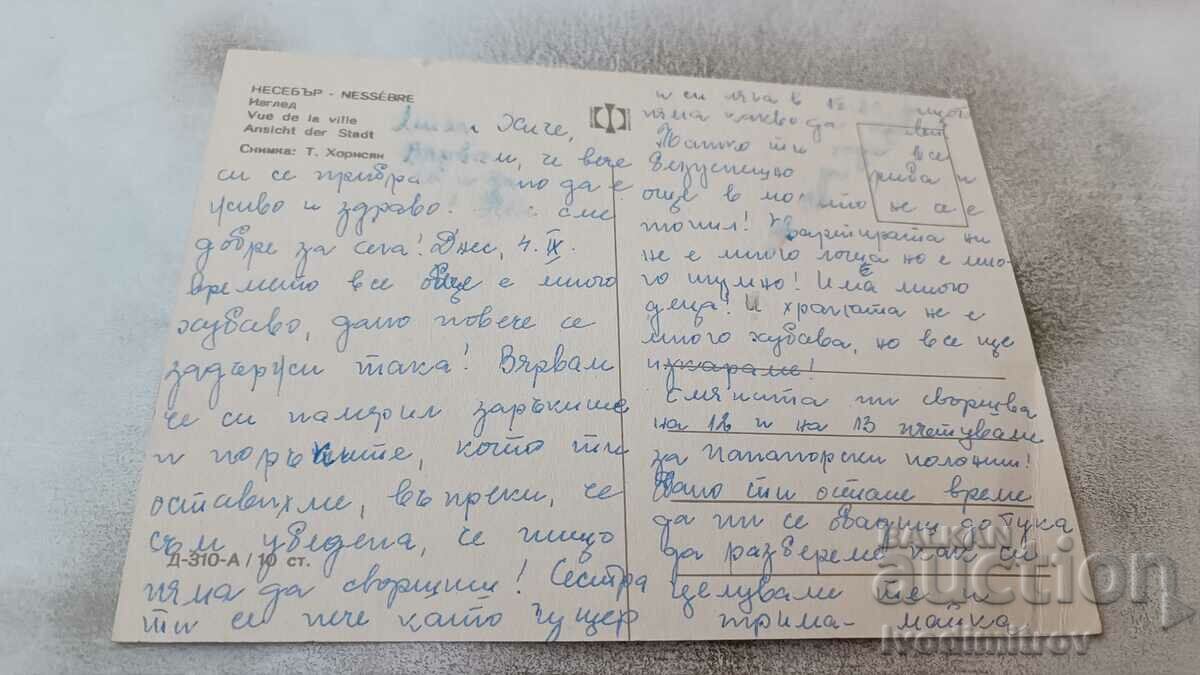 НЕСЕБЪР - NESSÈBRE
Изглед
Vue de la ville
Ansicht der Stadt
Снимка: Т. Хорисян
Хиче,
че вече
си се прибрал и дано да е
живо и здраво! Ние сме
добре за сега! Днес, 4. IX.
времето все още е много
хубаво, дано повече се
задържи така! Вярвам
че си намерил заръките
и поръките, които ти
оставихме, въпреки, че
съм уведена, че нищо
няма да свършиш! Сестра
ти се пече като гущер
Д-310-А / 10 ст.
и си ляга в 12
няма какво да
Татко ти все
безуспешно риба и
още в не се е
топил! Квартирата ни
не е много лоша но е мно-
го шумно! Има много
деца! И храната не е
много хубава, но все ще
изкараме!
Смяната ни свършва
на 12 и на 13 пътуваме
за Панагюрски колонии!
Дано ти остане време
да ни се обадиш до тука
да разбереме как си
целуваме те и
трима - майка
BALKAN
auction
Ivodimitrov